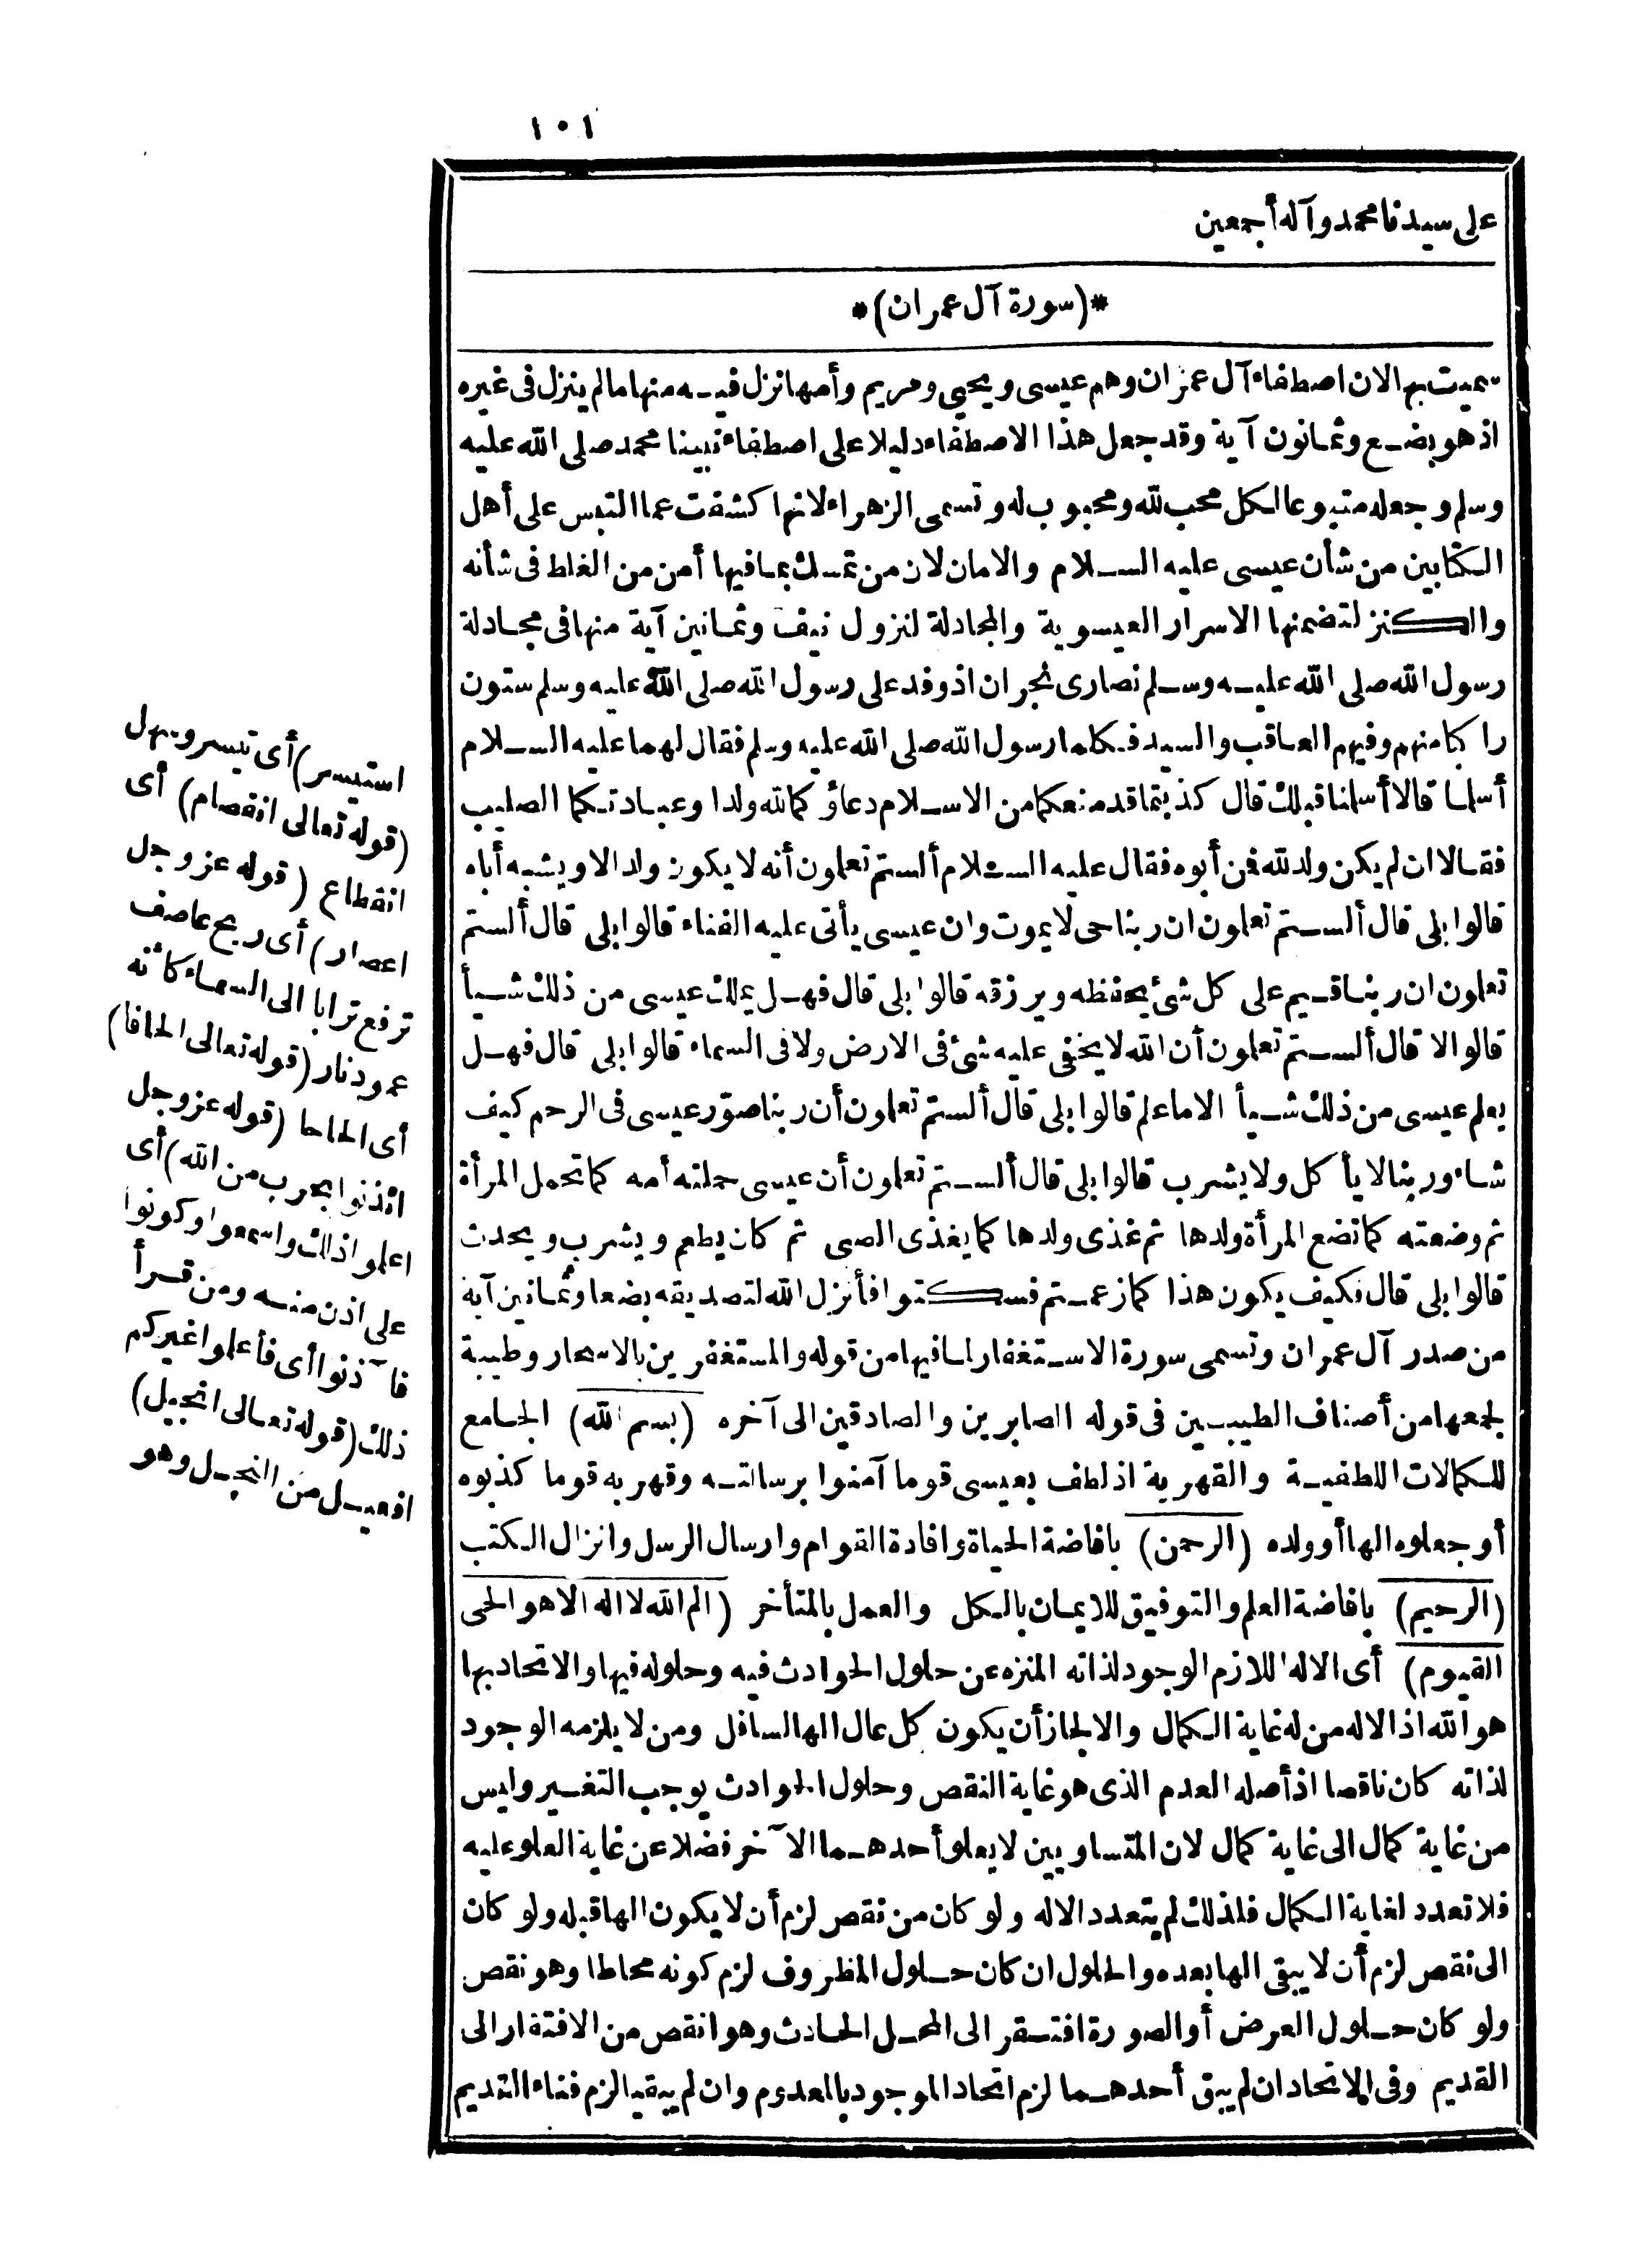 ١٠١
على سيدنا محمد وآله أجمعين
*(سورة آل عمران)*
سميت بها لان اصطفاء آل عمران وهم عيسى ويحيى ومريم وأمها نزل فيه منها ما لم ينزل فى غيره
اذ هو بضع وثمانون آية وقد جعل هذا الاصطفاء دليلا على اصطفاء نبينا محمد صلى الله عليه
وسلم وجعله متبوعا لكل محب لله ومحبوب له وتسمى الزهراء لانها كشفت عما التبس على أهل
الكتابين من شأن عيسى عليه السلام والامان لان من تمسك بما فيها أمن من الغلط فى شأنه
والكنز لتضمنها الاسرار العيسوية والمجادلة لنزول نيف وثمانين آية منها فى مجادلة
رسول الله صلى الله عليه وسلم نصارى نجران اذ وفد على رسول الله صلى الله عليه وسلم ستون
راكبا منهم وفيهم العاقب والسيد فكلما رسول الله صلى الله عليه وسلم فقال لهما عليه السلام
أسلما قالا أسلمنا قبلك قال كذبتما قد منعكما من الاسلام دعاؤكما لله ولدا وعبادتكما الصليب
فقالا ان لم يكن ولد لله فمن أبوه فقال عليه السلام ألستم تعلمون أنه لا يكون ولد الا ويشبه أباه
قالوا بلى قال ألستم تعلمون ان ربنا حى لا يموت وان عيسى يأتى عليه الفناء قالوا بلى قال ألستم
تعلمون ان ربنا قيم على كل شئ يحفظه ويرزقه قالوا بلى قال فهل يملك عيسى من ذلك شيأ
قالوا لا قال ألستم تعلمون أن الله لا يخفى عليه شئ فى الارض ولا فى السماء قالوا بلى قال فهل
يعلم عيسى من ذلك شيأ الا ما علم قالوا بلى قال ألستم تعلمون أن ربنا صوّر عيسى فى الرحم كيف
شاء وربنا لا يأكل ولا يشرب قالوا بلى قال ألستم تعلمون أن عيسى حملته أمه كما تحمل المرأة
ثم وضعته كما تضع المرأة ولدها ثم غذى ولدها كما يغذى الصبى ثم كان يطعم ويشرب ويحدث
قالوا بلى قال فكيف يكون هذا كما زعمتم فسكتوا فأنزل الله لتصديقه بضعا وثمانين آية
من صدر آل عمران وتسمى سورة الاستغفار لما فيها من قوله والمستغفرين بالاسحار وطيبة
لجمعها من أصناف الطيبين فى قوله الصابرين والصادقين الى آخره (بسم الله) الجامع
للكمالات اللطفية والقهرية اذ لطف بعيسى قوما آمنوا برسالته وقهر به قوما كذبوه
أو جعلوه الها أو ولده (الرحمن) بافاضة الحياة وافادة القوام وارسال الرسل وانزال الكتب
(الرحيم) بافاضة العلم والتوفيق للايمان بالكل والعمل بالمتأخر (الم الله لا اله الا هو الحى
القيوم) أى الاله اللازم الوجود لذاته المنزه عن حلول الحوادث فيه وحلوله فيها والاتحاد بها
هو الله اذ الاله من له غاية الكمال والا لجاز أن يكون كل عال الها لسافل ومن لا يلزمه الوجود
لذاته كان ناقصا اذ أصله العدم الذى هو غاية النقص وحلول الحوادث يوجب التغير وليس
من غاية كمال الى غاية كمال لان المتساويين لا يعلو أحدهما الآخر فضلا عن غاية العلو عليه
فلا تعدد لغاية الكمال فلذلك لم يتعدد الاله ولو كان من نقص لزم أن لا يكون الها قبله ولو كان
الى نقص لزم أن لا يبقى الها بعده والحلول ان كان حلول المظروف لزم كونه محاطا وهو نقص
ولو كان حلول العرض أو الصورة افتقر الى المحل الحادث وهو انقص من الافتقار الى
القديم وفى الاتحاد ان لم يبق أحدهما لزم اتحاد الموجود بالمعدوم وان لم يبقيا لزم فناء القديم
استيسر) أى تيسر وسهل
(قوله تعالى انفصام) أى
انقطاع (قوله عز وجل
اعصار) أى ريح عاصف
ترفع ترابا الى السماء كأنه
عمود نار (قوله تعالى الحافا)
أى الحاحا (قوله عز وجل
ائذنوا بحرب من الله) أى
اعلموا ذلك واسمعوا وكونوا
على اذن منه ومن قرأ
فآذنوا أى فأعلموا غيركم
ذلك (قوله تعالى انجيل)
افعيل من النجل وهو